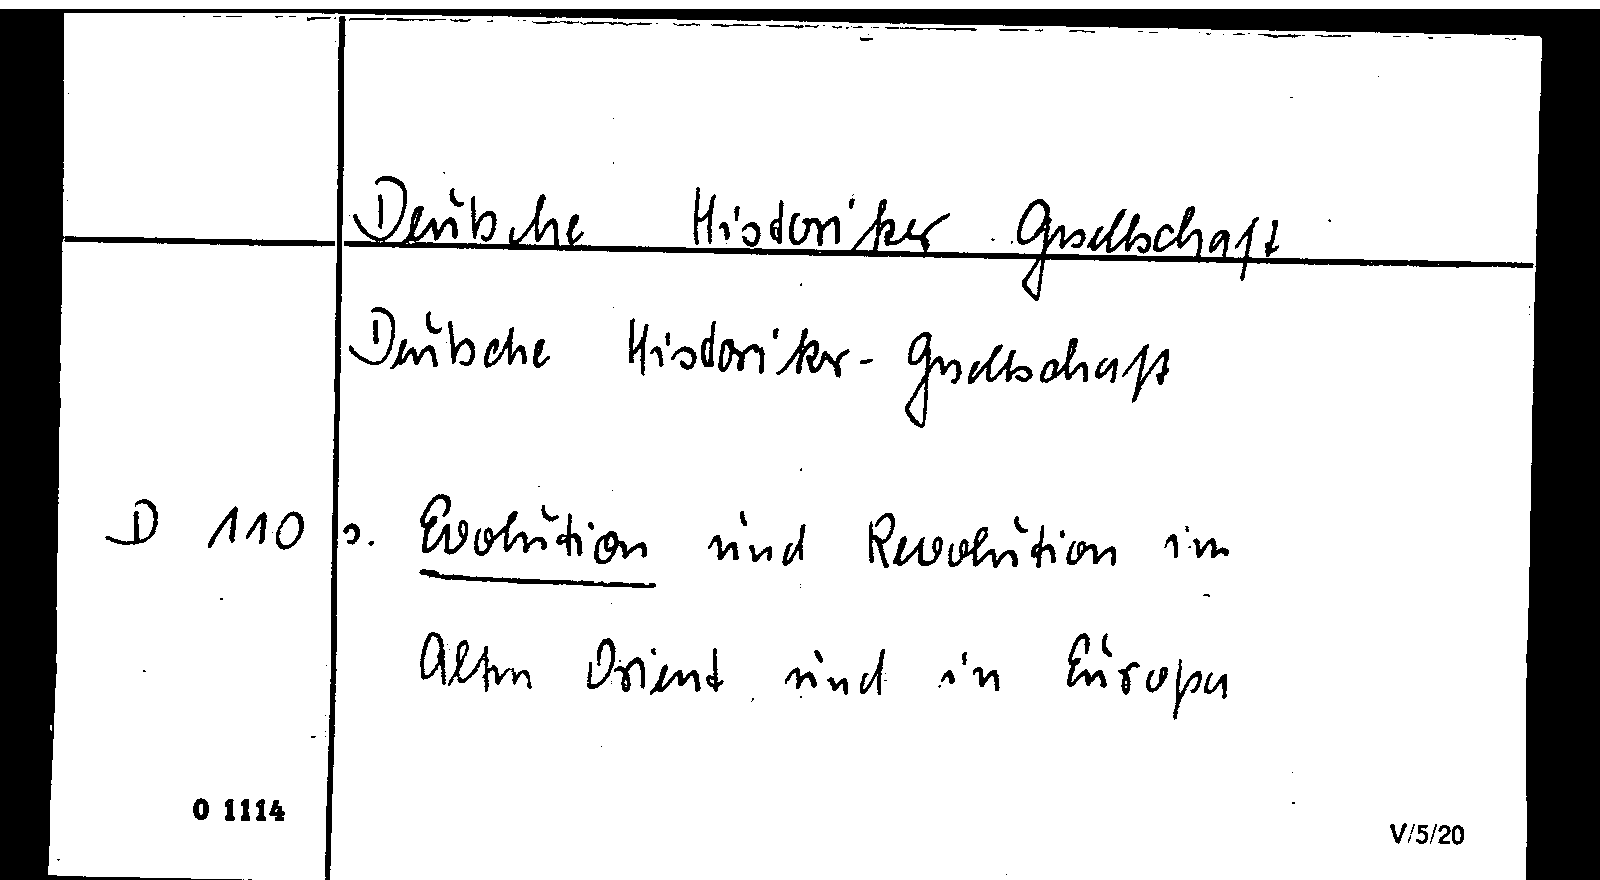 Deutsche Historiker Gesellschaft
Deutsche Historiker-Gesellschaft
D 110 s. Evolution und Revolution im
Alten Orient und in Europa
O 1114
V/5/20